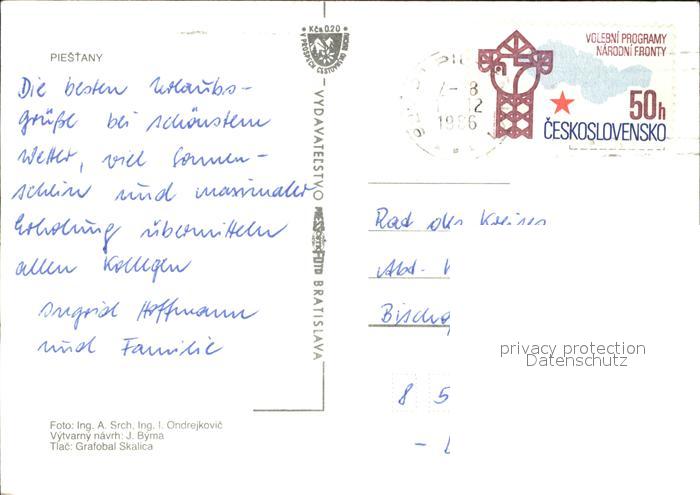 PIEŠŤANY
Die besten Urlaubs-
grüße bei schönstem
Wetter, viel Sonnen-
schein und maximaler
Erholung übermitteln
allen Kollegen
Ingrid Hoffmann
und Familie
Foto: Ing. A. Srch, Ing. I. Ondrejkovič
Výtvarný návrh: J. Býma
Tlač: Grafobal Skalica
Kčs 0,20
V PROSPECH CESTOVNÉHO RUCHU
VYDAVATEĽSTVO
BRATISLAVA
1986
VOLEBNÍ PROGRAMY
NÁRODNÍ FRONTY
50h
ČESKOSLOVENSKO
Rat des Kreises
Abt.
Bischo
8 5
privacy protection
Datenschutz